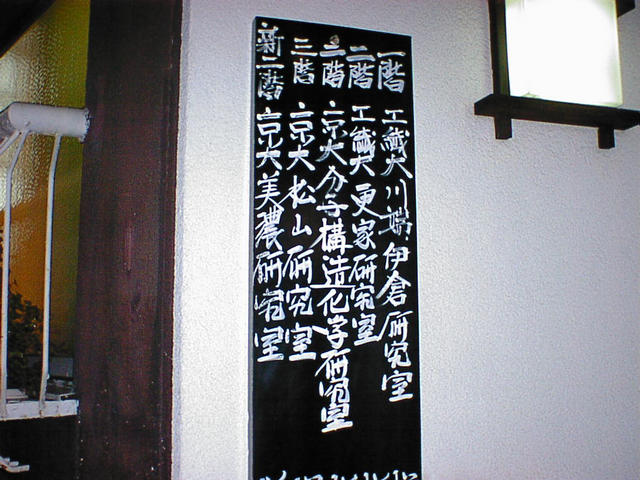 一階 工繊大 川端・伊倉研究室
二階 工繊大 更家研究室
二階 京大分子構造化学研究室
三階 京大 松山研究室
新二階 京大 美濃研究室